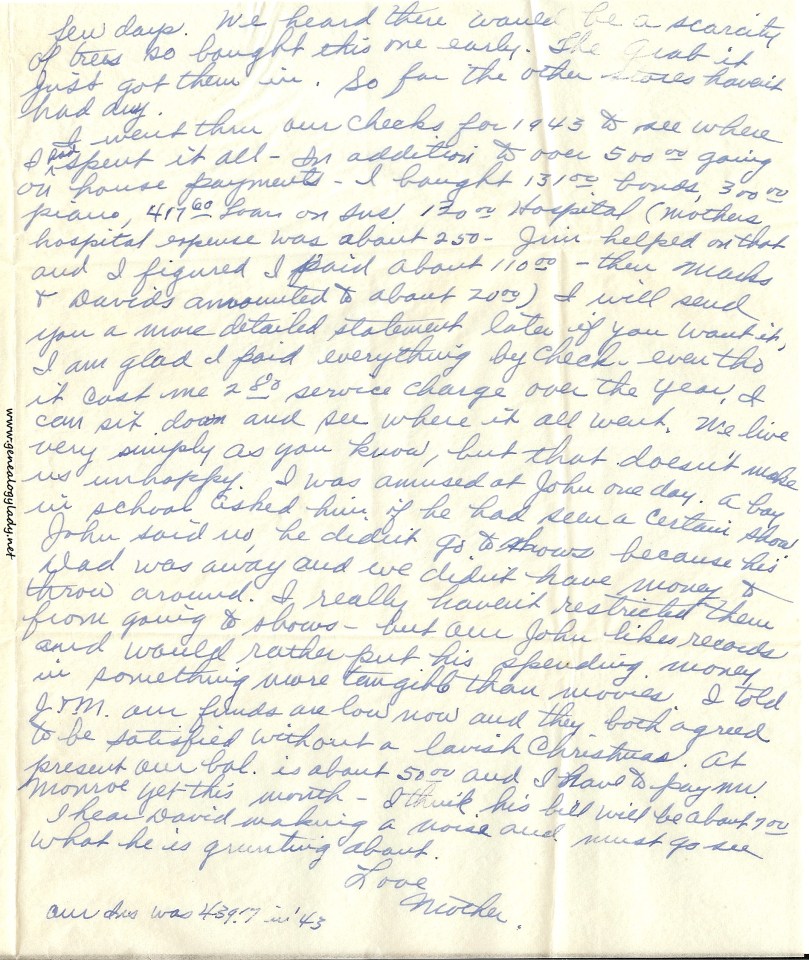 few days. We heard there would be a scarcity
of trees so bought this one early. The Grab it
just got them in. So far the other stores haven't
had any.
I went thru our checks for 1943 to see where
I had spent it all - In addition to over 500 00 going
on house payments - I bought 131 00 bonds, 300 00
piano, 417 60 Loan on Ins. 120 00 Hospital (Mothers
hospital expense was about 250 - Jim helped on that
and I figured I paid about 110 00 - then Marks
& Davids amounted to about 20 00) I will send
you a more detailed statement later if you want it,
I am glad I paid everything by check - even tho
it cost me 2 80 service charge over the year. I
can sit down and see where it all went. We live
very simply as you know, but that doesn't make
us unhappy. I was amused at John one day. A boy
in school asked him if he had seen a certain show
John said no, he didn't go to shows because his
Dad was away and we didn't have money to
throw around. I really haven't restricted them
from going to shows - but our John likes records
and would rather put his spending money
in something more tangible than movies. I told
J. & M. our funds are low now and they both agreed
to be satisfied without a lavish Christmas. At
present our bal. is about 50 00 and I have to pay Mr.
Monroe yet this month - I think his bill will be about 7 00
I hear David making a noise and must go see
what he is grunting about.
Love
Mother.
our Ins was 439.17 in '43
www.genealogylady.net